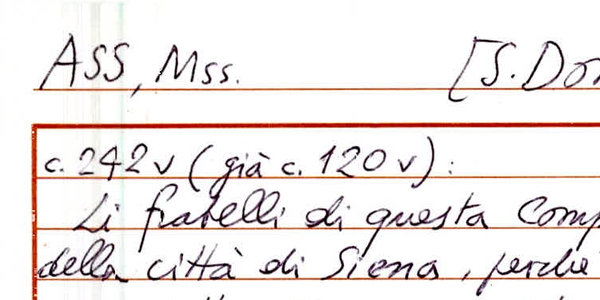 ASS, Mss. [S. Dom
c. 242v (già c. 120v):
Li fratelli di questa Comp
della città di Siena, perché